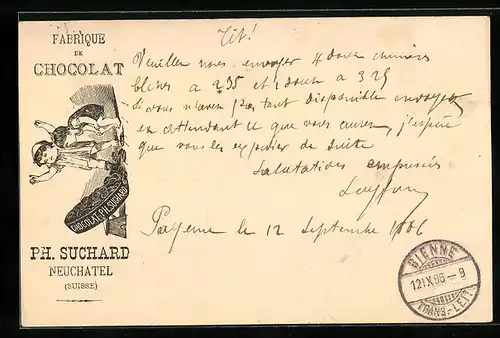 FABRIQUE
DE
CHOCOLAT
CHOCOLAT PH. SUCHARD
PH. SUCHARD
NEUCHATEL
(SUISSE)
Tit!
Veuillez nous envoyer 4 douz chemises
bleues à 235 et 1 douz à 325
Si vous n'avez pas tout disponible envoyez
en attendant ce que vous aurez, j'espère
que vous les expédier de suite
Salutations empressées
Payerne le 12 Septembre 1886
BIENNE
12 IX 86 - 9
TRANS-LETT.